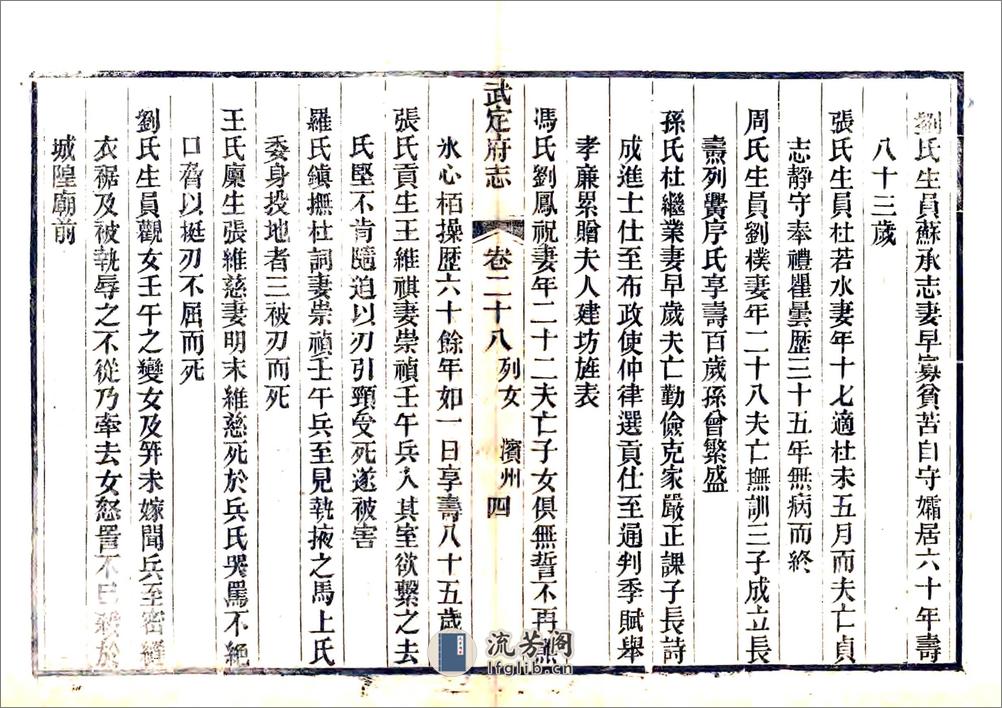 劉氏生員蘇承志妻早寡貧苦自守孀居六十年壽
八十三歲
張氏生員杜若水妻年十七適杜未五月而夫亡貞
志靜守奉禮瞿曇歷三十五年無病而終
周氏生員劉樸妻年二十八夫亡撫訓三子成立長
燾列黌序氏享壽百歲孫曾繁盛
孫氏杜繼業妻早歲夫亡勤儉克家嚴正課子長詩
成進士仕至布政使仲律選貢仕至通判季賦舉
孝廉累贈夫人建坊旌表
馮氏劉鳳祝妻年二十二夫亡子女俱無誓不再
武定府志 卷二十八 列女 濱州 四
氷心栢操歷六十餘年如一日享壽八十五歲
張氏貢生王維祺妻崇禎壬午兵入其室欲繫之去
氏堅不肯隨迫以刃引頸受死遂被害
羅氏鎮撫杜詞妻崇禎壬午兵至見執掖之馬上氏
委身投地者三被刃而死
王氏廩生張維慈妻明末維慈死於兵氏哭罵不絕
口脅以挺刃不屈而死
劉氏生員觀女壬午之變女及笄未嫁聞兵至密縫
衣裾及被執辱之不從乃牽去女怒詈不已殺於
城隍廟前
流芳阁
lfglib.cn